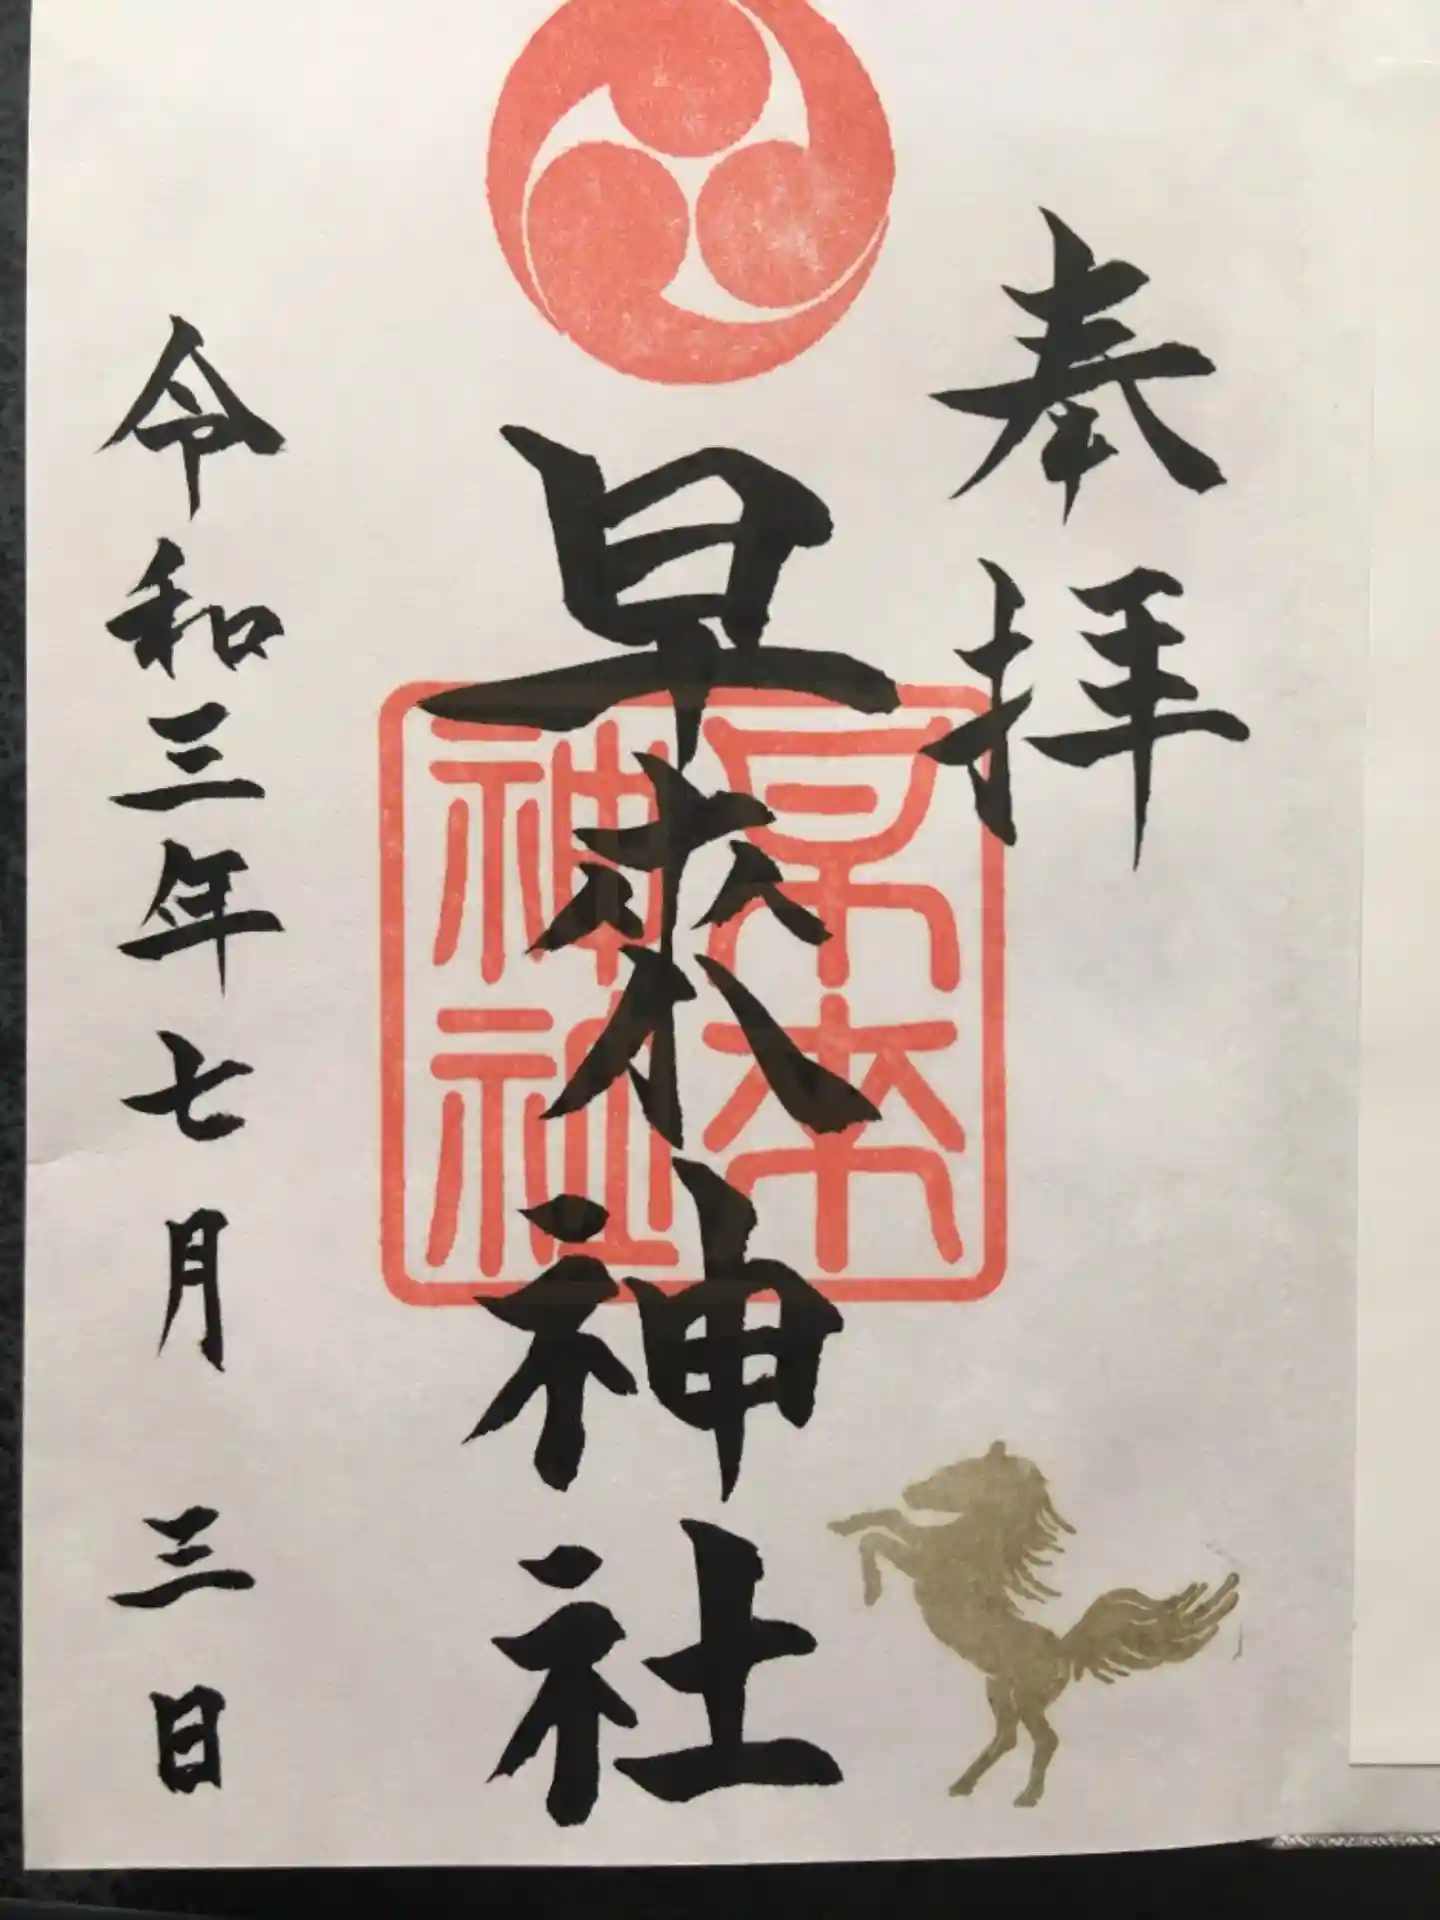 奉拝
早來神社
早来神社
令和三年七月三日